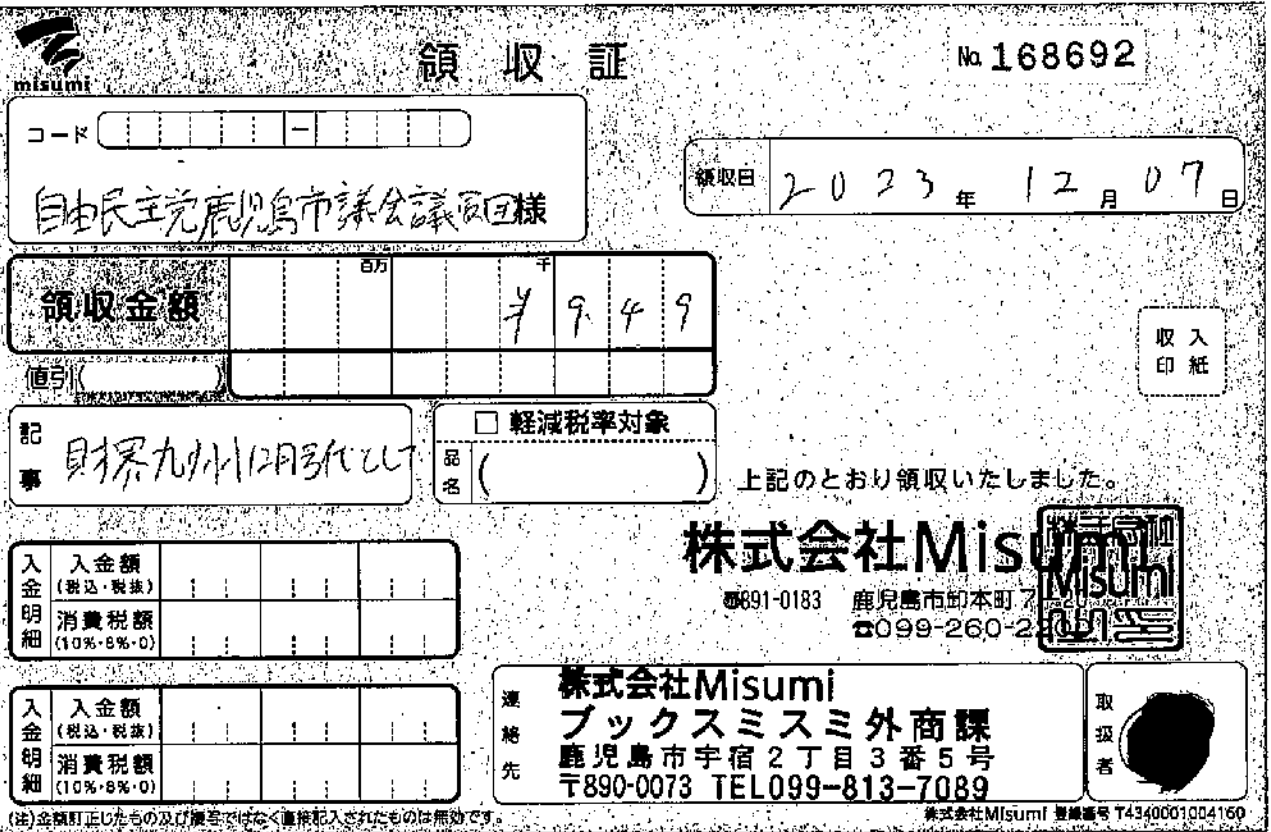 misumi
領収証
No. 168692
コード
自由民主党鹿児島市議会議員団様
領収日 2023年 12月 07日
百万 千
領収金額 ¥949
値引( )
収入
印紙
記事 財界九州12月号代として
□ 軽減税率対象
品名 ( )
上記のとおり領収いたしました。
株式会社Misumi
〒891-0183 鹿児島市卸本町7
☎099-260-2200
入金明細 入金額
(税込・税抜)
消費税額
(10%・8%・0)
入金明細 入金額
(税込・税抜)
消費税額
(10%・8%・0)
連絡先 株式会社Misumi
ブックスミスミ外商課
鹿児島市宇宿2丁目3番5号
〒890-0073 TEL099-813-7089
取扱者
(注)金額訂正したもの及び複写ではなく直接記入されたものは無効です。
株式会社Misumi 登録番号 T4340001004160